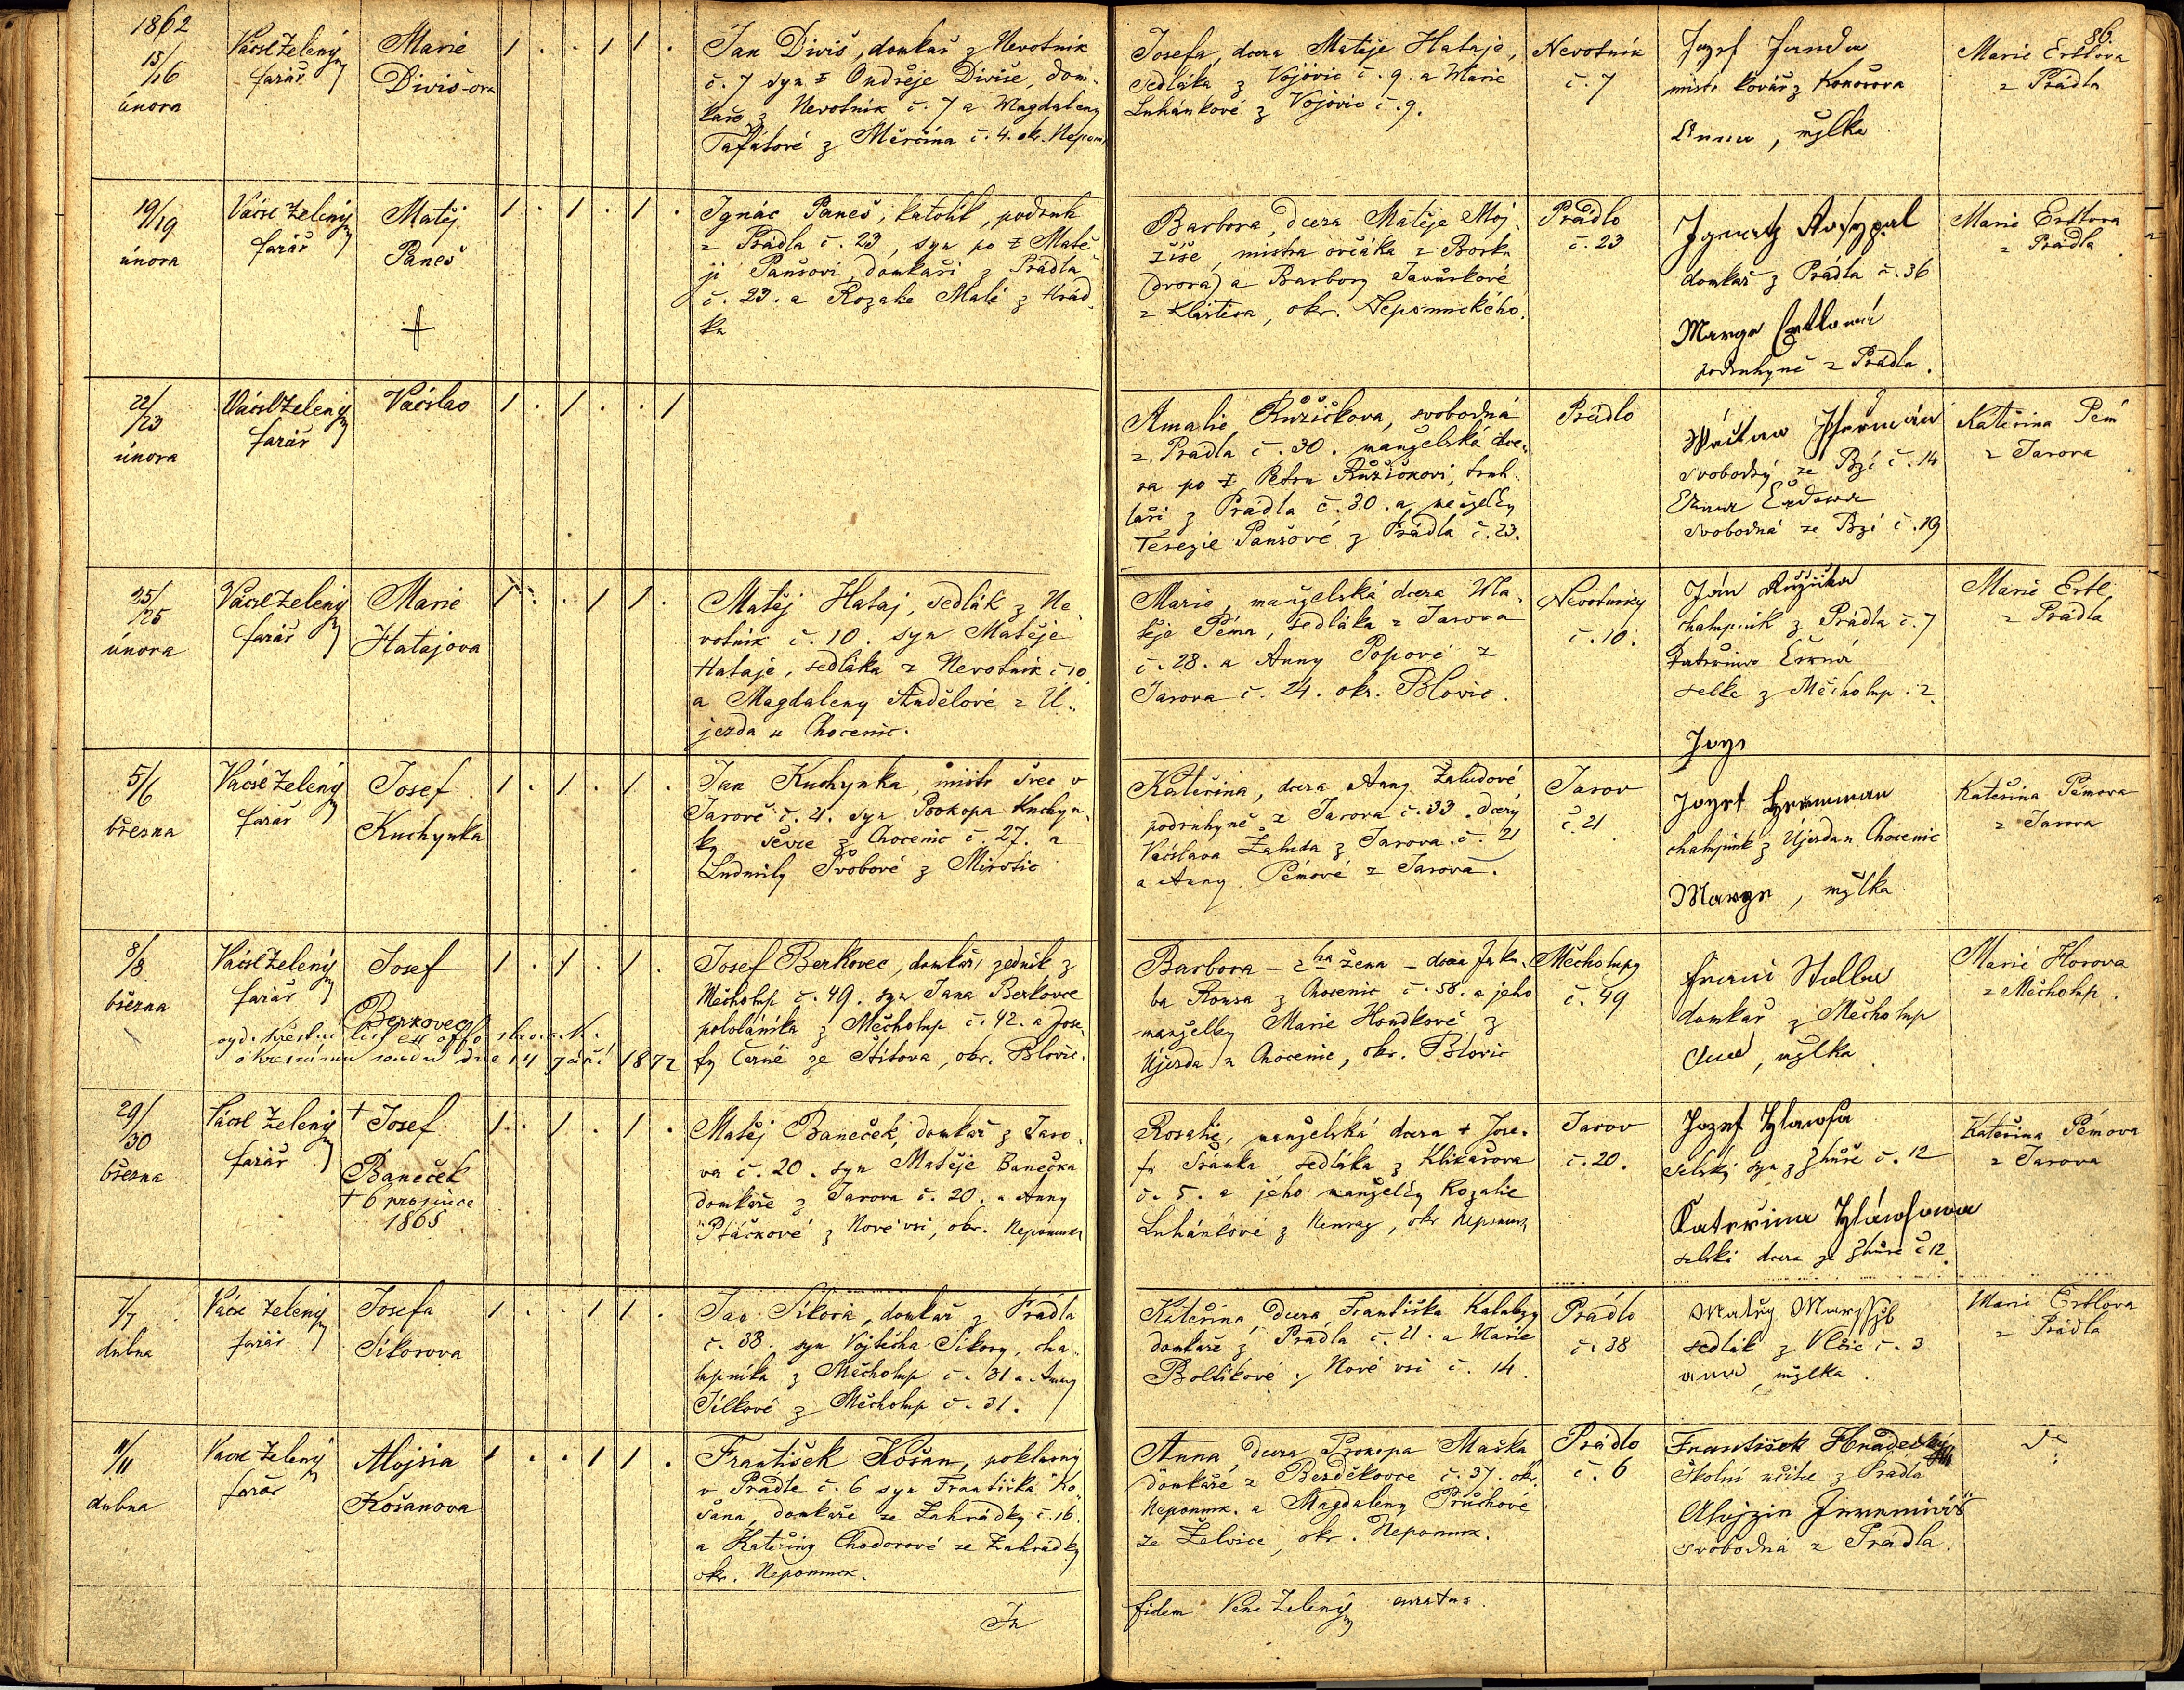 86.
1862
15/16
února
Václ Zelený
farář
Marie
Diviš-ova
1 . . 1 1 .
Jan Diviš, domkař z Nevotnik
č. 7 syn ‡ Ondřeje Diviše, dom-
kaře z Nevotnik č. 7 a Magdaleny
z Měrčína č. 4. okr. Nepom.
Josefa, dcera Matěje Hataje,
sedláka z Vojovic č. 9. a Marie
Luhánkové z Vojovic č. 9.
Nevotnik
č. 7
Jozef Janda
mistr kovář z
Anna, mžlka
Marie Ertlova
z Prádla
19/19
února
Václ Zelený
farář
Matěj
Paneš
1 . 1 . 1 .
Ignác Paneš, katolík, podruh
z Prádla č. 23, syn po ‡ Matě-
ji Panšovi, domkaři z Prádla
č. 23. a Rozalie Malé z Hrád-
ka
Barbora, dcera Matěje Moj-
žíše, mistra ovčáka z Borku
(dvora) a Barbory Javůrkové
z Kláštera, okr. Nepomuckého.
Prádlo
č. 23
Ignatz Rosypal
domkař z Prádla č. 36
Marya Ertlová
podruhyně z Prádla.
Marie Ertlova
z Prádla
22/23
února
Václ Zelený
farář
Václav
1 . 1 . . 1
Amalie Růžičkova, svobodná
z Prádla č. 30. manželská dce-
ra po ‡ Petru Růžičkovi, truh-
láři z Prádla č. 30. a manželky
Terezie Panšové z Prádla č. 23.
Prádlo
Václav
svobodný ze Bzí č. 14
svobodná ze Bzí č. 19
Kateřina Pém
z Jarova
25/25
února
Václ Zelený
farář
Marie
Hatajova
1 . . 1 1 .
Matěj Hataj, sedlák z Ne-
votnik č. 10. syn Matěje
Hataje, sedláka z Nevotnik č. 10
a Magdaleny Andělové z Ú-
jezda u Chocenic.
Marie, manželská dcera Ma-
těje Péma, sedláka z Jarova
č. 28. a Anny Popové z
Jarova č. 24. okr. Blovic.
Nevotniky
č. 10.
Ján Růžička
chalupník z Prádla č. 7
Kateřina Černá
selka z Měcholup. 2.
Marie Ertl,
z Prádla
5/6
března
Václ Zelený
farář
Josef
Kuchynka
1 . 1 . 1 .
Jan Kuchynka, mistr švec v
Jarově č. 4. syn Prokopa Kuchyn-
ky ševce z Chocenic č. 27. a
Ludmily Švobové z Mirotic
Kateřina, dcera Anny Žaludové
podruhyně z Jarova č. 33. dcery
Václava Žaluda z Jarova č. 21
a Anny Pémové z Jarova.
Jarov
č. 21
Jozef Herman
chalupník z Újezda u Chocenic
Marya, mžlka
Kateřina Pémova
z Jarova
8/8
března
Václ Zelený
farář
Josef
Berkovec
1 . 1 . 1 .
vyd. křestní list ex offo sl. c. k.
okresnímu soudu dne 14 září 1872
Josef Berkovec, domkář, zedník z
Měcholup č. 49. syn Jana Berkovce
pololáníka z Měcholup č. 42. a Jose-
fy Černé ze Štítova, okr. Blovic.
Barbora - 2há žena - dcera Jaku-
ba Rousa z Chocenic č. 58. a jeho
manželky Marie Houdkové z
Újezda u Chocenic, okr. Blovic
Měcholupy
č. 49
domkář z Měcholup
mžlka
Marie Horova
z Měcholup.
29/30
března
Václ Zelený
farář
† Josef
Baneček
† 6 prosince
1865
1 . 1 . 1 .
Matěj Baneček, domkař z Jaro-
va č. 20. syn Matěje Banečka
domkaře z Jarova č. 20. a Anny
Ptáčkové z Nové vsi, okr. Nepomuck
Rosalie, manželská dcera † Jose-
fa Šrámka, sedláka z Klikařova
č. 5. a jeho manželky Rozalie
Luhánkové z okr Nepomuk
Jarov
č. 20.
Jozef Hlawsa
selský syn z Zhůře č. 12
Kateřina Hláwsowa
selská dcera ze Zhůře č 12.
Kateřina Pémova
z Jarova
7/7
dubna
Václ Zelený
farář
Josefa
Sikorova
1 . . 1 1 .
Jan Sikora, domkař z Prádla
č. 38. syn Vojtěcha Sikory, cha-
lupníka z Měcholup č. 31 a Anny
Jílkové z Měcholup č. 31.
Kateřina, dcera Františka Kalabzy
domkaře z Prádla č. 21. a Marie
Boltikové z Nové vsi č. 14.
Prádlo
č. 38
Matěj
sedlák z Vlčic č. 3
mžlka.
Marie Ertlova
z Prádla
11/11
dubna
Václ Zelený
farář
Alojsia
Košanova
1 . . 1 1 .
František Košan, poklasný
v Prádle č. 6 syn Františka Ko-
šana, domkaře ze Zahrádky č. 16.
a Kateřiny Chodorové ze Zahrádky
okr. Nepomuck.
Anna, dcera Prokopa Maška
domkaře z Bezděkovce č. 37. okr.
Nepomuk. a Magdaleny Průchové
ze Želvice, okr. Nepomuk.
Prádlo
č. 6
František Hradecký
školní učitel z Prádla
Alojzia
svobodná z Prádla.
In
fidem Venc Zelený curatus.